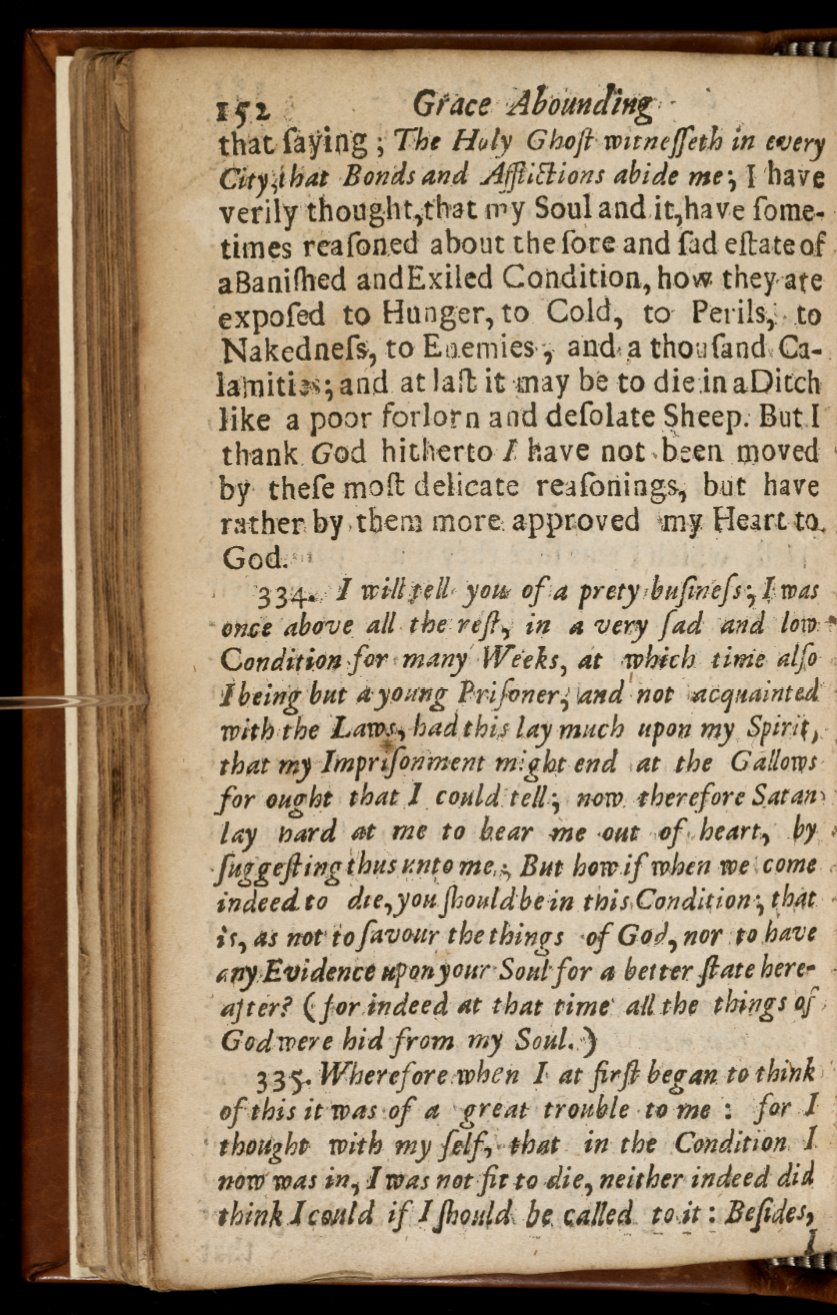 152 Grace Abounding
that ſaying ; The Holy Ghoſt witneſſeth in every
City, that Bonds and Afflictions abide me; I have
verily thought, that my Soul and it, have ſome-
times reaſoned about the ſore and ſad eſtate of
a Baniſhed and Exiled Condition, how they are
expoſed to Hunger, to Cold, to Perils, to
Nakedneſs, to Enemies, and a thouſand Ca-
lamities; and at laſt it may be to die in a Ditch
like a poor forlorn and deſolate Sheep. But I
thank God hitherto I have not been moved
by theſe moſt delicate reaſonings, but have
rather by them more approved my Heart to
God.
334. I will tell you of a prety buſineſs; I was
once above all the reſt, in a very ſad and low
Condition for many Weeks, at which time alſo
I being but a young Priſoner, and not acquainted
with the Laws, had this lay much upon my Spirit,
that my Impriſonment might end at the Gallows
for ought that I could tell; now therefore Satan
lay hard at me to bear me out of heart, by
ſuggeſting thus unto me; But how if when we come
indeed to die, you ſhould be in this Condition; that
is, as not to ſavour the things of God, nor to have
any Evidence upon your Soul for a better ſtate here-
after? (for indeed at that time all the things of
God were hid from my Soul.)
335. Wherefore when I at firſt began to think
of this it was of a great trouble to me : for I
thought with my ſelf, that in the Condition I
now was in, I was not fit to die, neither indeed did
think I could if I ſhould be called to it : Beſides,
I